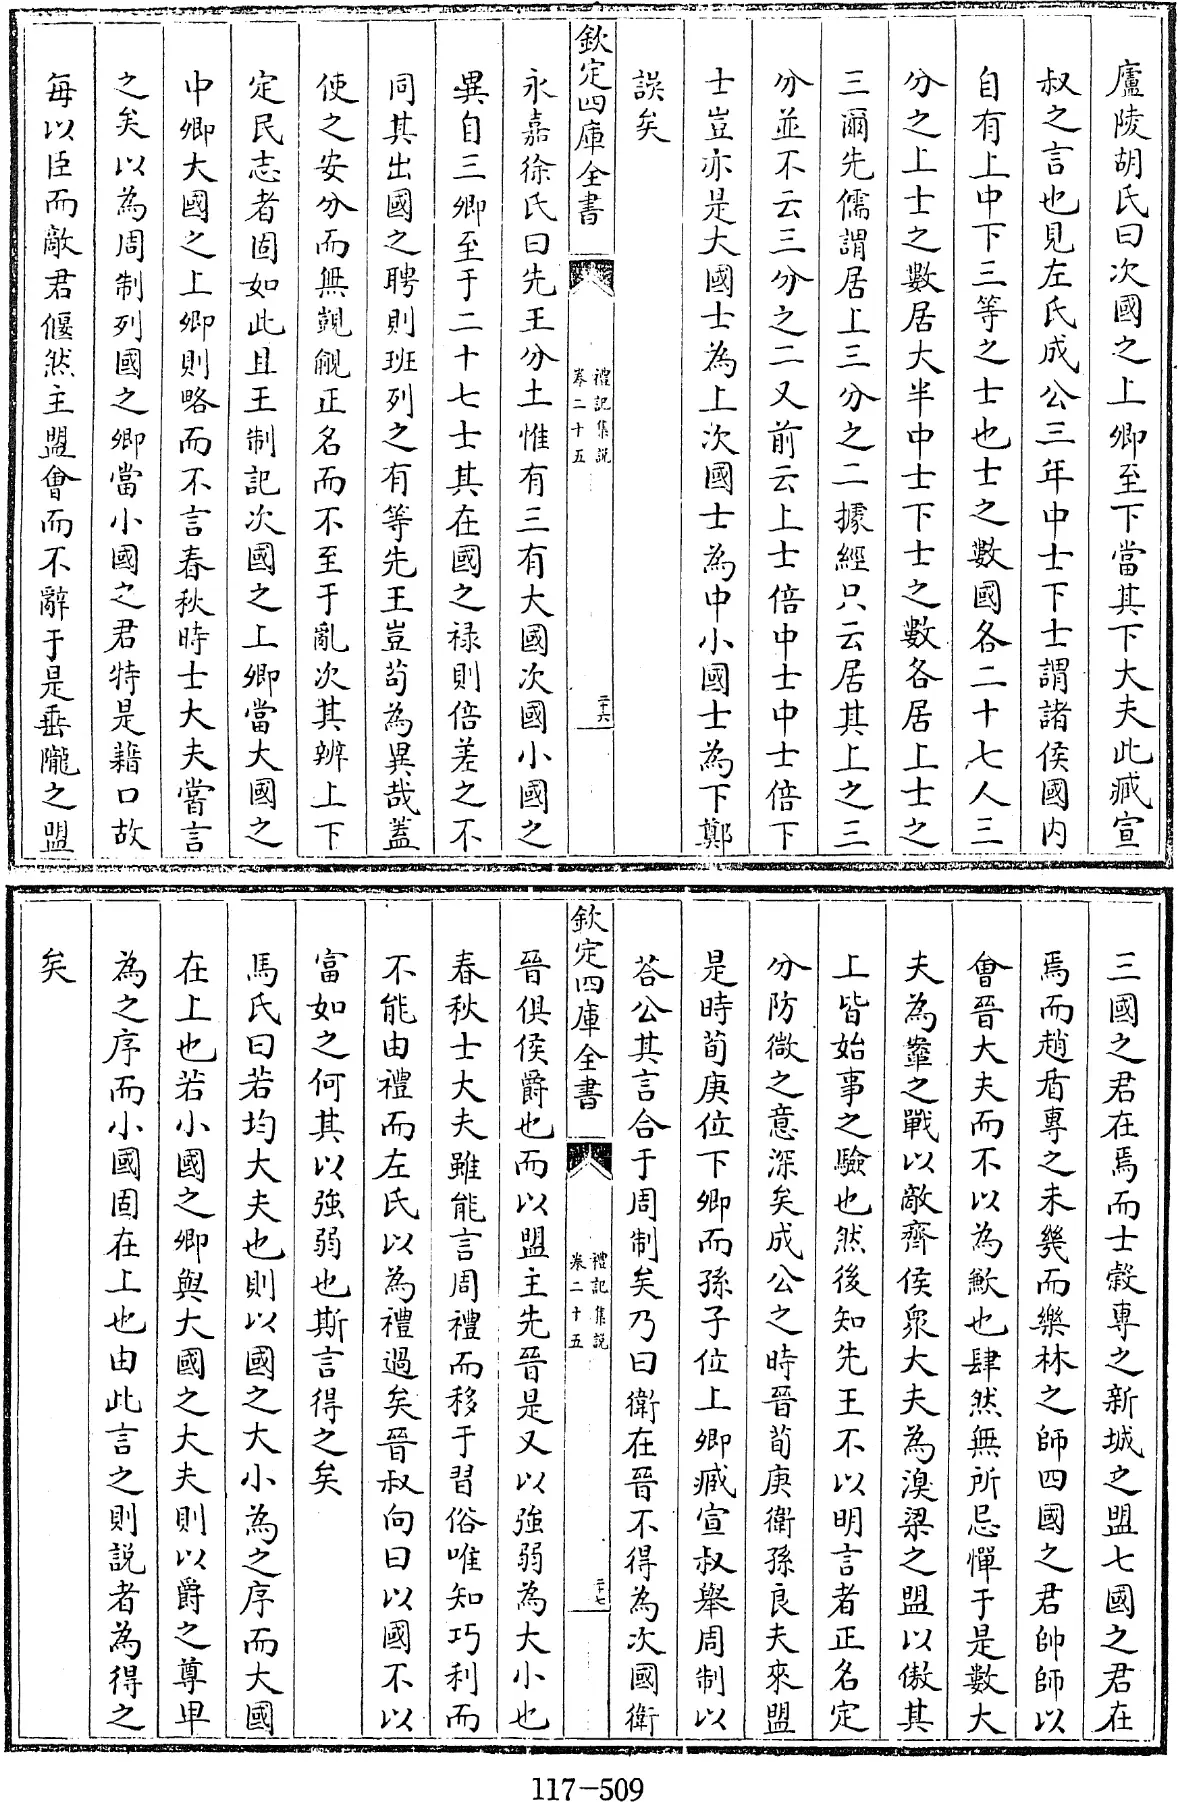 廬陵胡氏曰次國之上卿至下當其下大夫此臧宣
叔之言也見左氏成公三年中士下士謂諸侯國内
自有上中下三等之士也士之數國各二十七人三
分之上士之數居大半中士下士之數各居上士之
三爾先儒謂居上三分之二據經只云居其上之三
分並不云三分之二又前云上士倍中士中士倍下
士豈亦是大國士為上次國士為中小國士為下鄭
誤矣
欽定四庫全書
禮記集說
卷二十五
二十六
永嘉徐氏曰先王分土惟有三有大國次國小國之
異自三卿至于二十七士其在國之祿則倍差之不
同其出國之聘則班列之有等先王豈苟為異哉蓋
使之安分而無覬覦正名而不至于亂次其辨上下
定民志者固如此且王制記次國之上卿當大國之
中卿大國之上卿則略而不言春秋時士大夫嘗言
之矣以為周制列國之卿當小國之君特是藉口故
每以臣而敵君偃然主盟會而不辭于是垂隴之盟
三國之君在焉而士縠專之新城之盟七國之君在
焉而趙盾專之未幾而樂林之師四國之君帥師以
會晉大夫而不以為歉也肆然無所忌憚于是數大
夫為鞌之戰以敵齊侯衆大夫為溴梁之盟以傲其
上皆始事之驗也然後知先王不以明言者正名定
分防微之意深矣成公之時晉荀庚衛孫良夫來盟
是時荀庚位下卿而孫子位上卿臧宣叔舉周制以
荅公其言合于周制矣乃曰衛在晉不得為次國衛
欽定四庫全書
禮記集說
卷二十五
二十七
晉俱侯爵也而以盟主先晉是又以強弱為大小也
春秋士大夫雖能言周禮而移于習俗唯知巧利而
不能由禮而左氏以為禮過矣晉叔向曰以國不以
富如之何其以強弱也斯言得之矣
馬氏曰若均大夫也則以國之大小為之序而大國
在上也若小國之卿與大國之大夫則以爵之尊卑
為之序而小國固在上也由此言之則說者為得之
矣
117-509